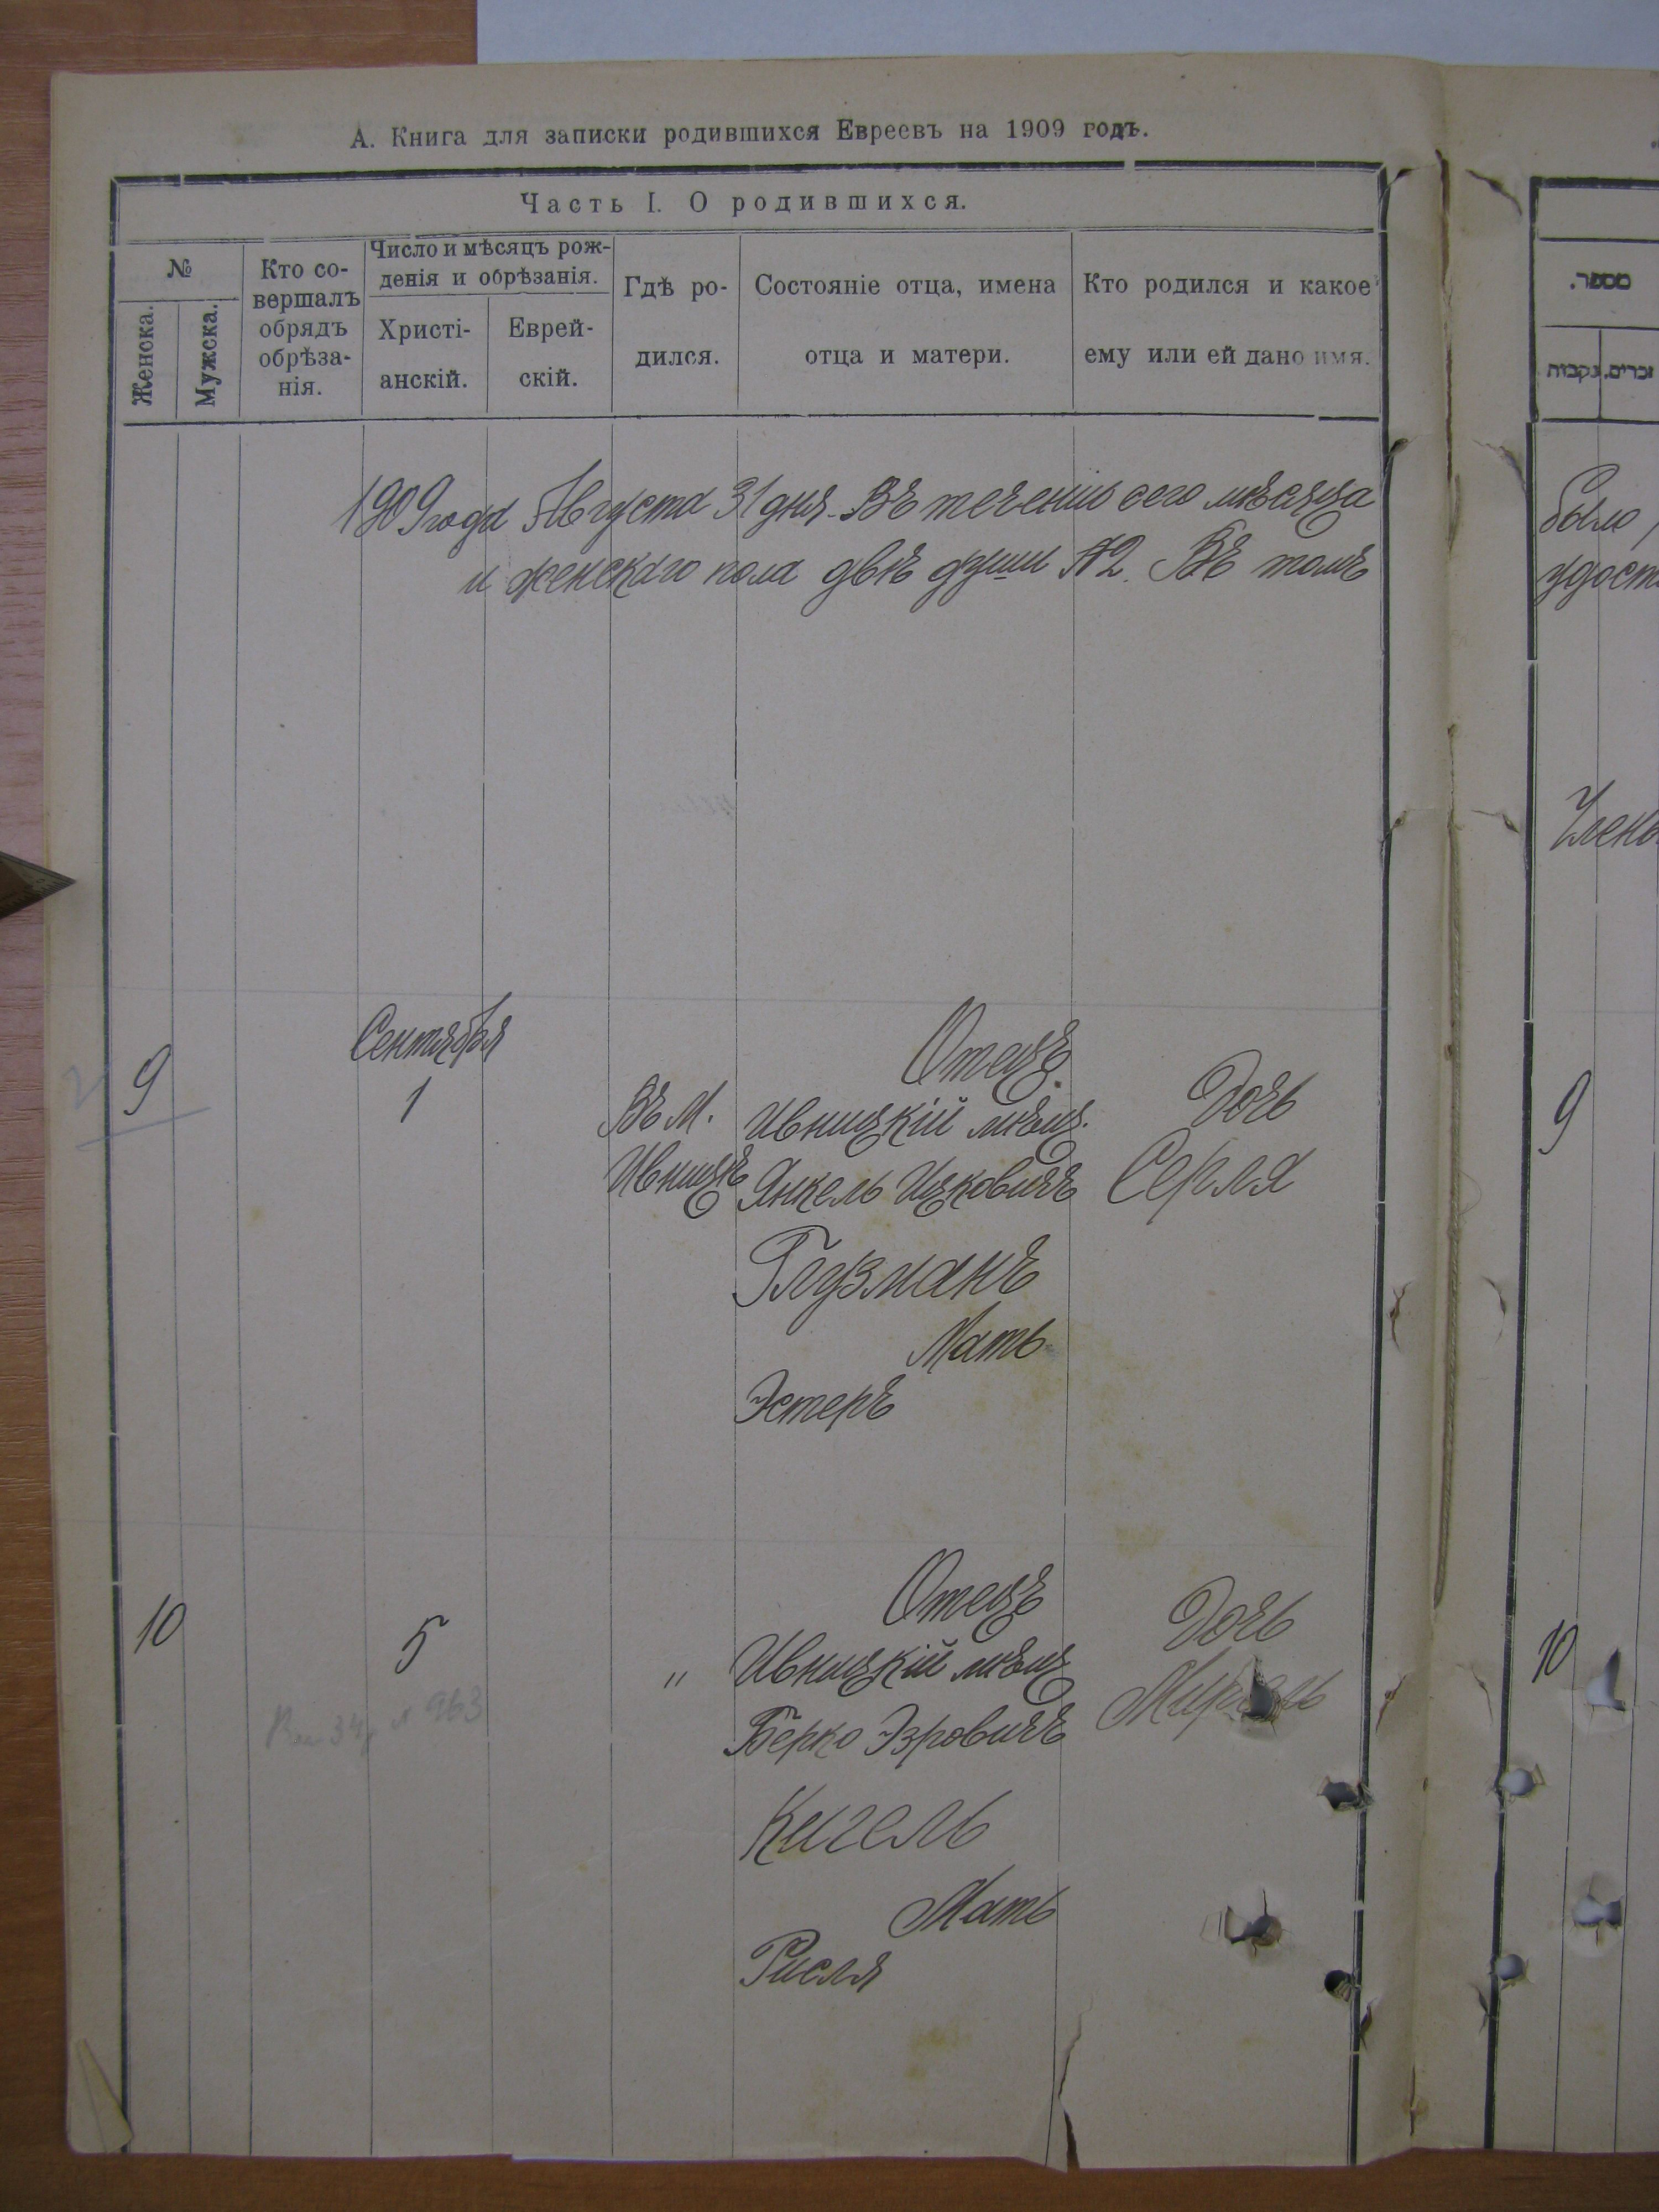 А. Книга для записки родившихся Евреевъ на 1909 годъ.
Часть I. О родившихся.
№
Женска.
Мужска.
Кто со-
вершалъ
обрядъ
обрѣза-
нія.
Число и мѣсяцъ рож-
денія и обрѣзанія.
Христі-
анскій.
Еврей-
скій.
Гдѣ ро-
дился.
Состояніе отца, имена
отца и матери.
Кто родился и какое
ему или ей дано имя.
1909 года Августа 31 дня. Въ теченіи сего мѣсяца
и женскаго пола двѣ души №2. Въ томъ
9
Сентября
1
Въ М.
Ивницѣ
Отецъ
Ивницкій мѣщ.
Янкель Ицковичъ
Глузманъ
Мать
Эстеръ
Дочь
Серля
10
5
"
Отецъ
Ивницкій мѣщ
Берко Эзровичъ
Кигель
Мать
Рисля
Дочь
מספר.
זכרים.
נקבות
было
удост
Члень
9
10